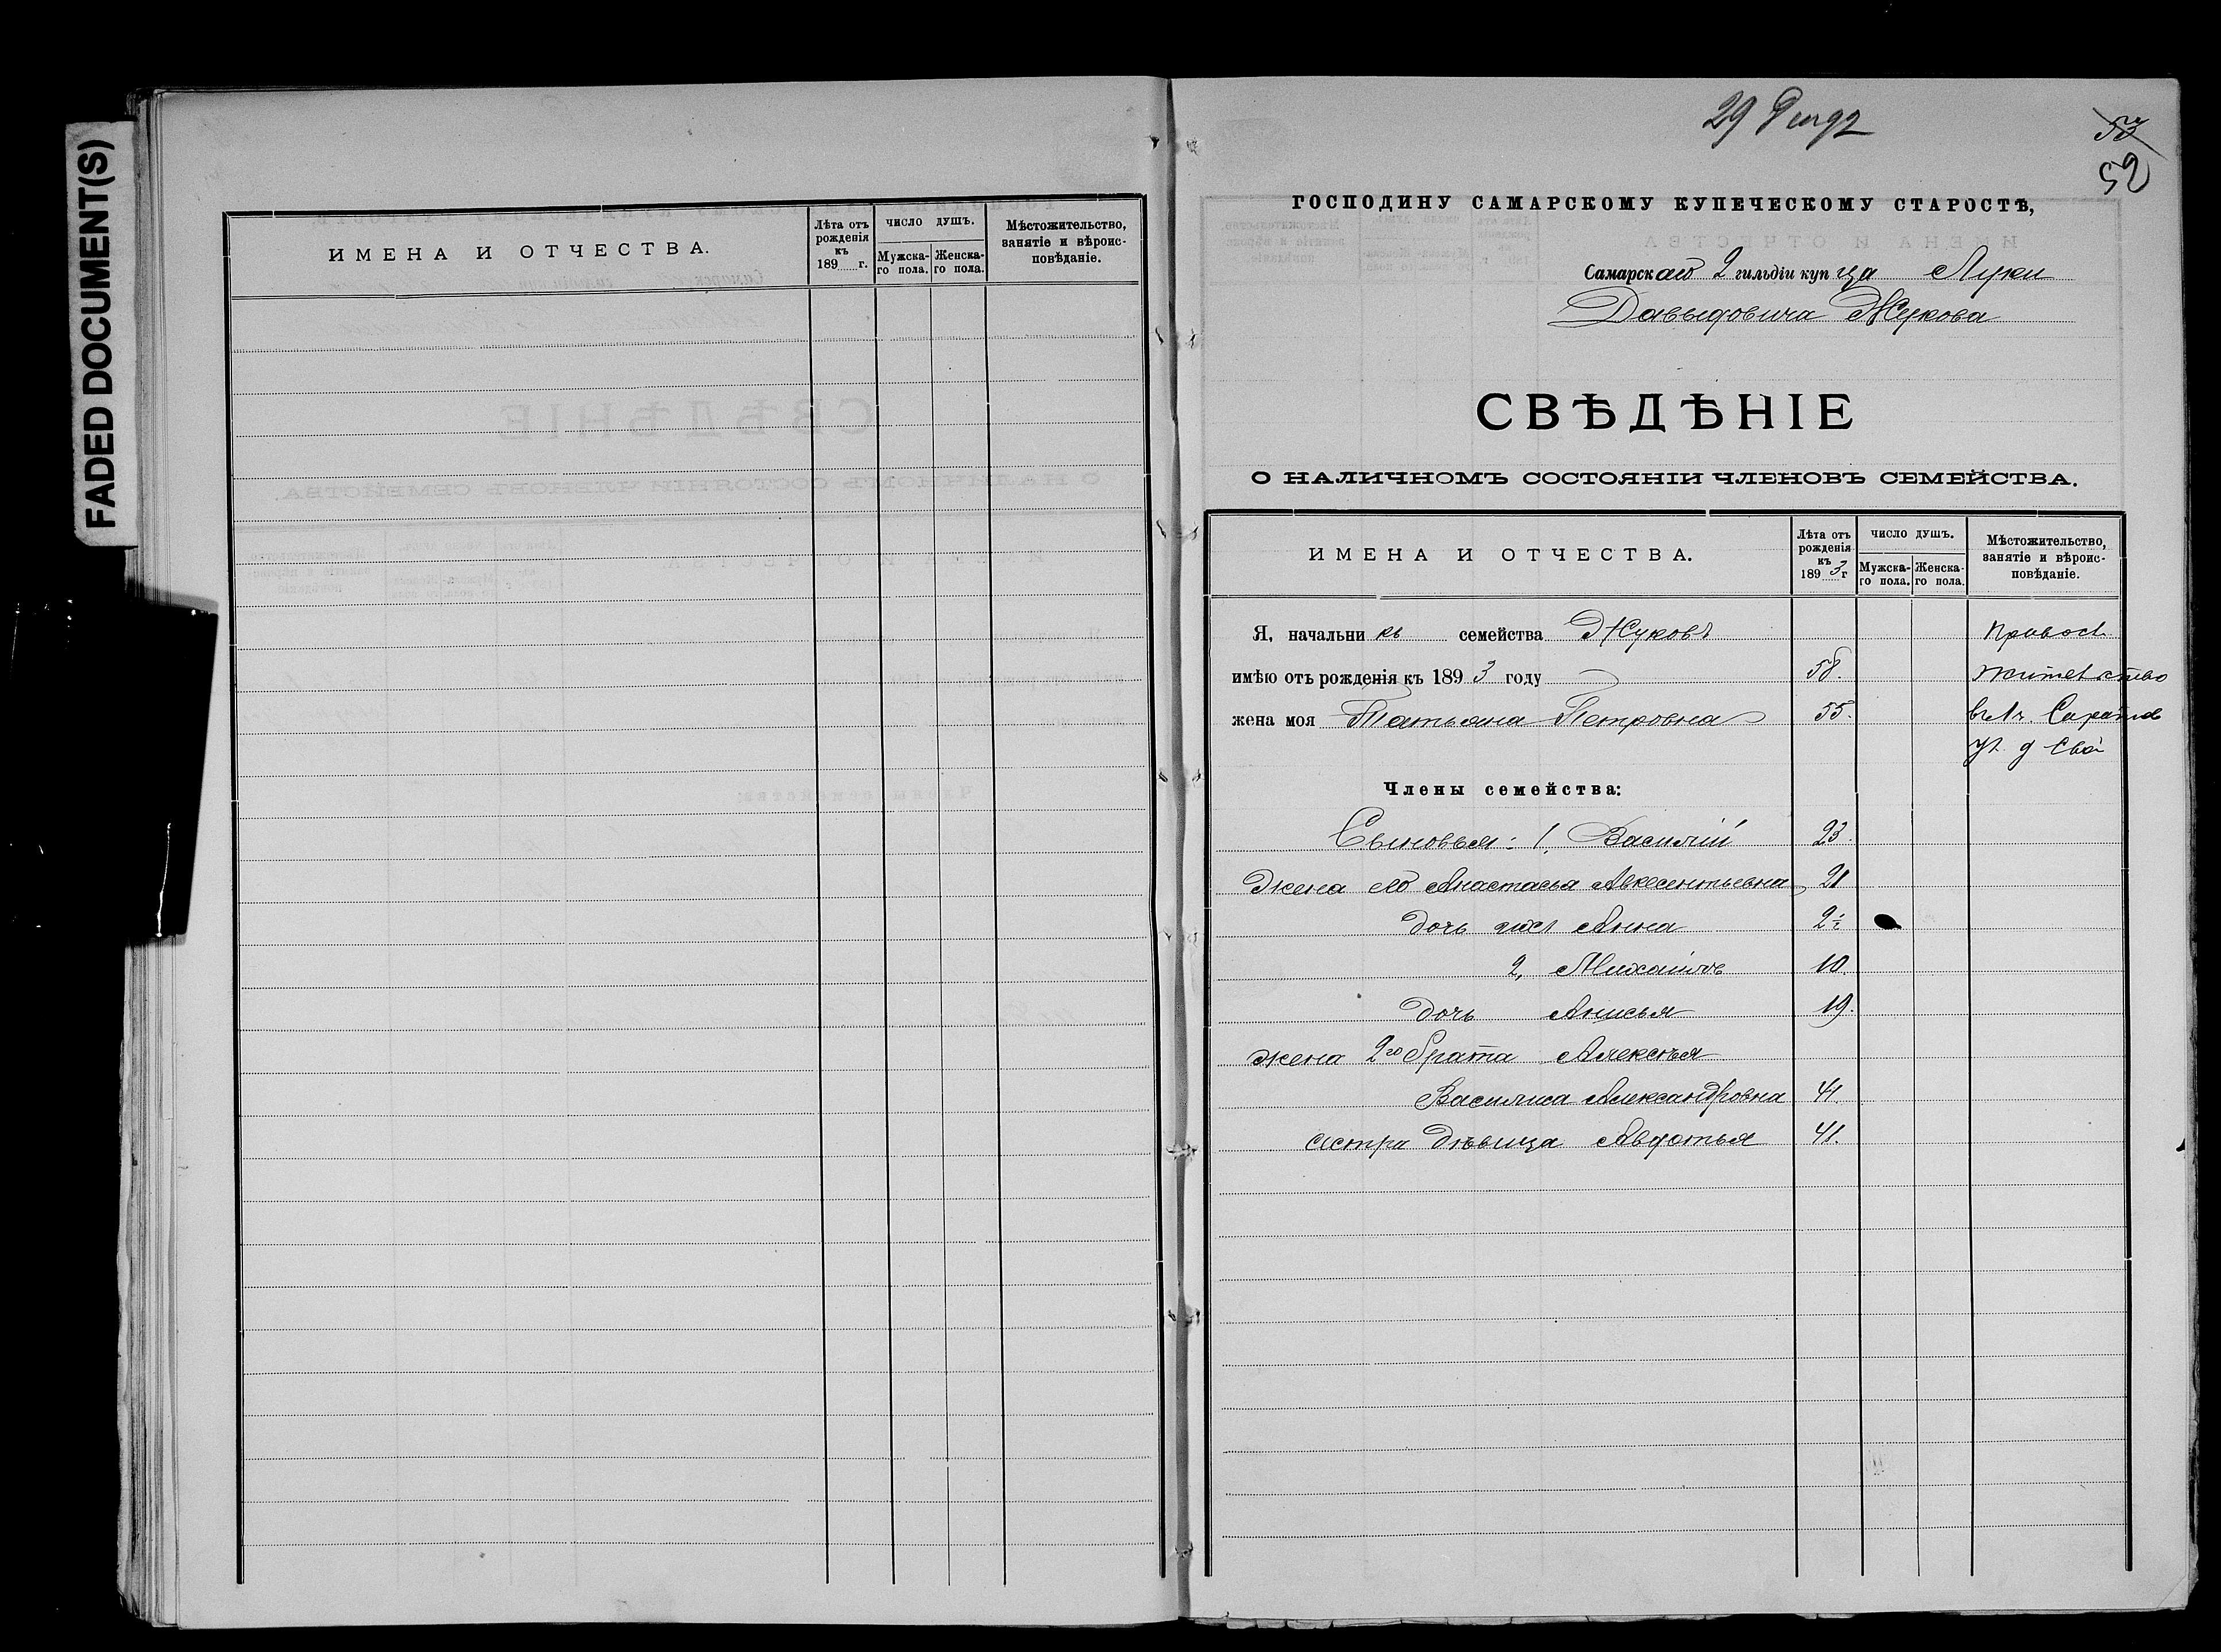 FADED DOCUMENT(S)
ИМЕНА И ОТЧЕСТВА.
Лѣта отъ рожденія къ 189 г.
ЧИСЛО ДУШЪ.
Мужска-го пола.
Женска-го пола.
Мѣстожительство, занятіе и вѣроис-повѣданіе.
29
53
52
ГОСПОДИНУ САМАРСКОМУ КУПЕЧЕСКОМУ СТАРОСТѢ,
Самарскаго 2 гильдіи купца Луки
Давыдовича Жукова
СВѢДѢНІЕ
О НАЛИЧНОМЪ СОСТОЯНІИ ЧЛЕНОВЪ СЕМЕЙСТВА.
ИМЕНА И ОТЧЕСТВА.
Лѣта отъ рожденія къ 1893 г
ЧИСЛО ДУШЪ.
Мужска-го пола.
Женска-го пола.
Мѣстожительство, занятіе и вѣроис-повѣданіе.
Я, начальникъ семейства Жуковъ Правосл.
имѣю отъ рожденія къ 1893 году 58. жительство
жена моя Татьяна Петровна 55.
ул. д Сво
Члены семейства:
Сыновья: 1, Василій 23.
Жена его Анастасья Авксентьевна 21
дочь ихъ Анна 2½
2, Михаилъ 10.
дочь Анисья 19.
жена 2го брата Алексѣя
Василиса Александровна 41.
сестра дѣвица Авдотья 41.